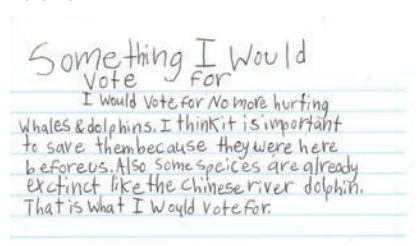 Something I Would
Vote for
I Would Vote for No more hurting
Whales & dolphins. I think it is important
to save them because they were here
before us. Also some speices are already
exctinct like the Chinese river dolphin.
That is What I Would Vote for.